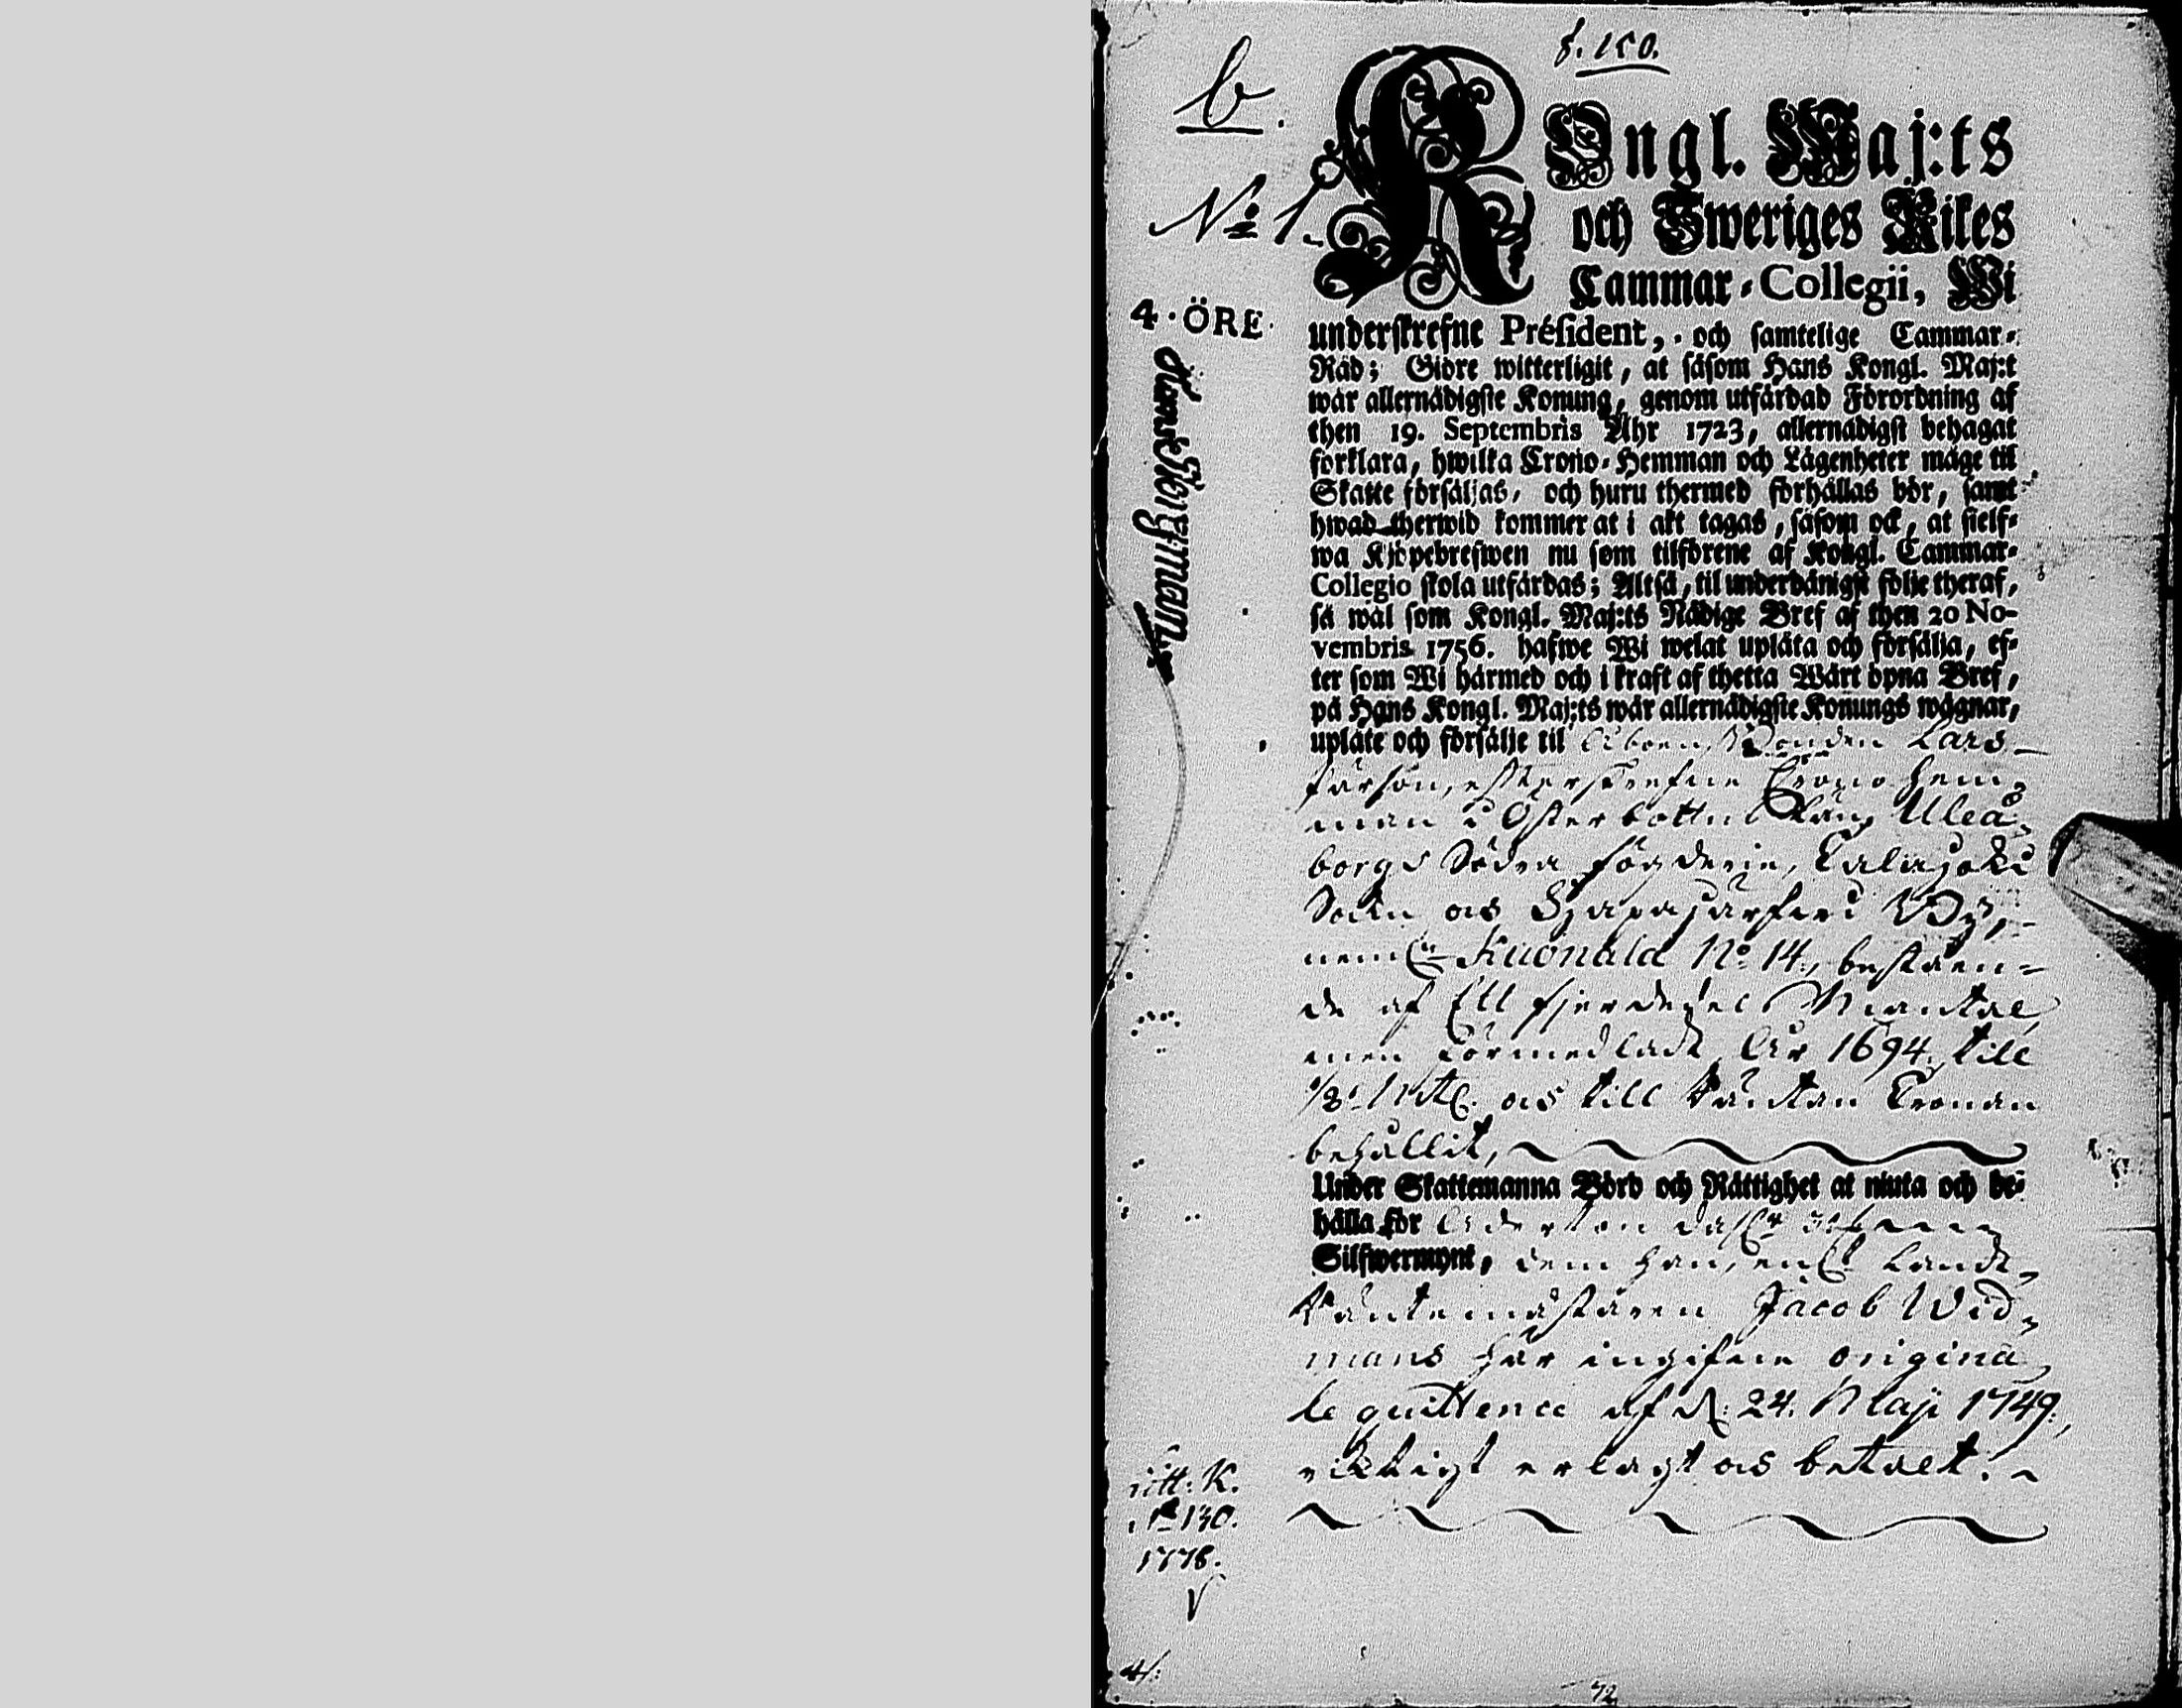 b.
f. 150.
No 1.
KOngl. Maj:ts
och Sweriges Rikes
Cammar-Collegii, Wi
4. ÖRE.
underskrefne Présidént, och samtelige Cammar-
Råd; Giöre witterligit, at såsom Hans Kongl. Maj:t
wår allernådigste Konung, genom utfärdad Förordning af
then 19. Septembris Åhr 1723, allernådigst behagat
förklara, hwilka Crono-Hemman och Lägenheter måge til
Skatte försäljas, och huru thermed förhållas bör, samt
hwad therwid kommer at i akt tagas, såsom ock, at sielf-
wa Kjöpebrefwen nu som tilförene af Kongl. Cammar-
Collegio skola utfärdas; Altså, til underdånigst följe theraf,
så wäl som Kongl. Maj:ts Nådige Bref af then 20 No-
vembris 1756. hafwe Wi welat uplåta och försälja, ef-
ter som Wi härmed och i kraft af thetta Wårt öpna Bref,
på Hans Kongl. Maj:ts wår allernådigste Konungs wägnar,
uplåte och försälje til Åboen Bonden Lars
efterskrefne Crono Hem-
man i Österbottns Län, Uleå-
borgs Södra fögderie, Calajoki
Sockn och By,
neml. No 14, bestäen-
de af Ett fjerdedel Mantal
men förmedladt År 1694. till
1/8 Mtl. och till Räntan Cronan
behållit,
Under Skattemanna Börd och Rättighet at niuta och be-
hålla för
Silfwermynt, dem han, enl. Landt-
Räntemästaren Jacob Wid-
mans här ingifne origina-
le quittence af d. 24. Maji 1749,
riktigt erlagt och betalt.
Litt: K.
No 130.
1778.